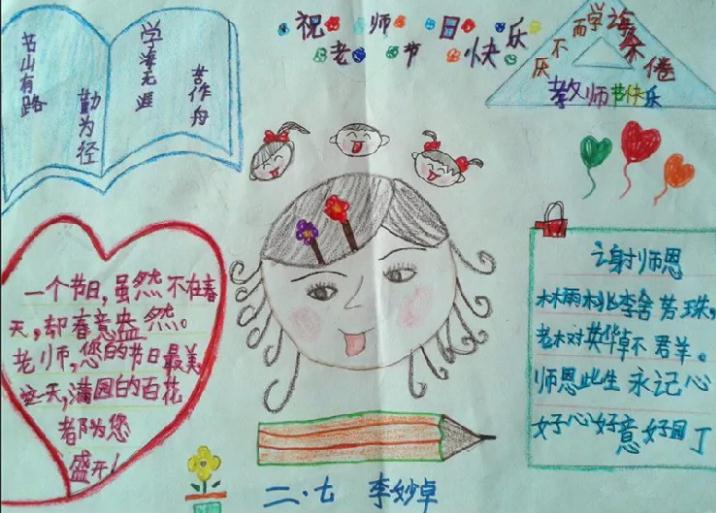 书山有路
勤为径
学海无涯
苦作舟
祝老师节日快乐
学而不厌
倦
教师节快乐
一个节日，虽然不在春
天，却春意盎然。
老师，您的节日最美
这天，满园的百花
都为您
盛开！
谢师恩
林雨桃李含芳珠，
老树英华卓不群。
师恩此生永记心
好心好意好园丁
二·七 李妙卓